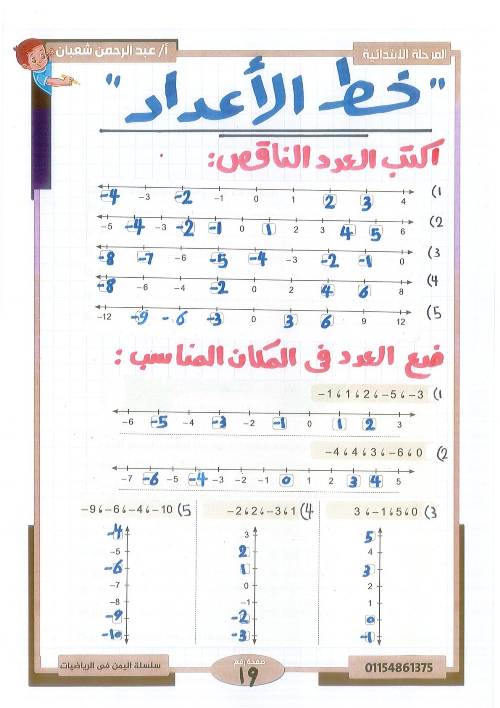 المرحلة الابتدائية
أ/ عبد الرحمن شعبان
"خط الأعداد"
اكتب العدد الناقص:
(1 -4 -3 -2 -1 0 1 2 3 4
(2 -5 -4 -3 -2 -1 0 1 2 3 4 5 6
(3 -8 -7 -6 -5 -4 -3 -2 -1 0
(4 -8 -6 -4 -2 0 2 4 6 8
(5 -12 -9 -6 -3 0 3 6 9 12
ضع العدد فى المكان المناسب:
(1 -1 ، 1 ، 2 ، -5 ، -3
-6 -5 -4 -3 -2 -1 0 1 2 3
(2 -4 ، 4 ، 3 ، -6 ، 0
-7 -6 -5 -4 -3 -2 -1 0 1 2 3 4 5
(3 3 ، -1 ، 5 ، 0
5
4
3
2
1
0
-1
(4 -2 ، 2 ، -3 ، 1
3
2
1
0
-1
-2
-3
(5 -9 ، -6 ، -4 ، -10
-4
-5
-6
-7
-8
-9
-10
01154861375
صفحة رقم
19
سلسلة اليمن فى الرياضيات